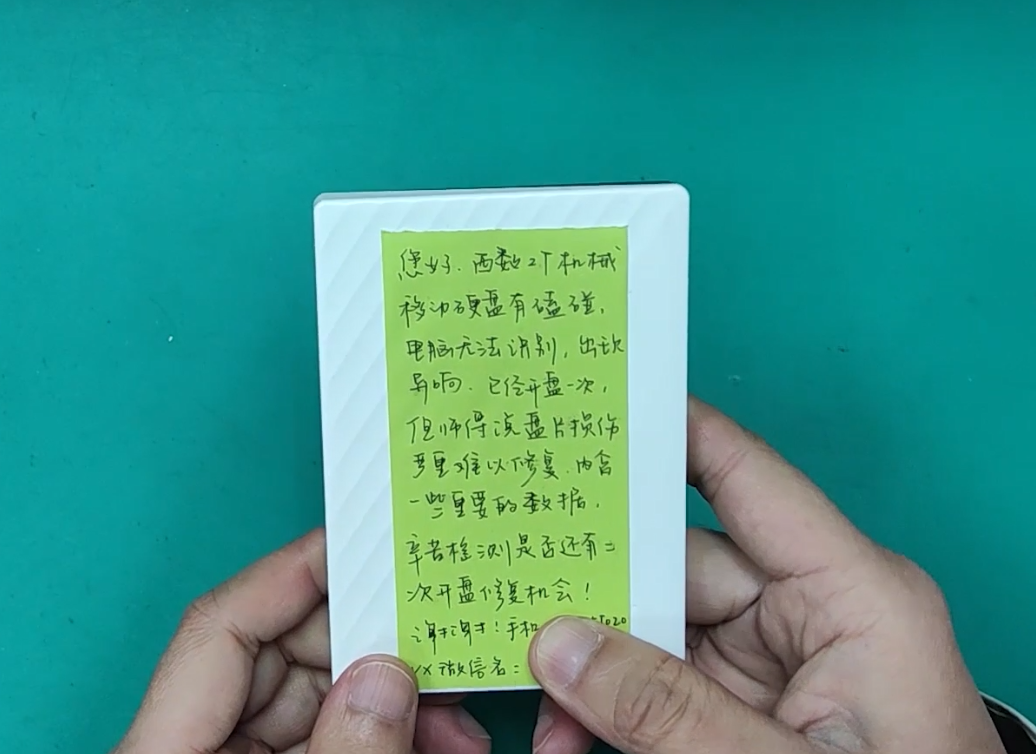 您好. 西数2T机械
移动硬盘有磕碰,
电脑无法识别, 出现
异响. 已经开盘一次,
但师傅说盘片损伤
严重难以修复. 内含
一些重要的数据.
辛苦检测是否还有二
次开盘修复机会!
谢谢谢谢! 手机
微信名: